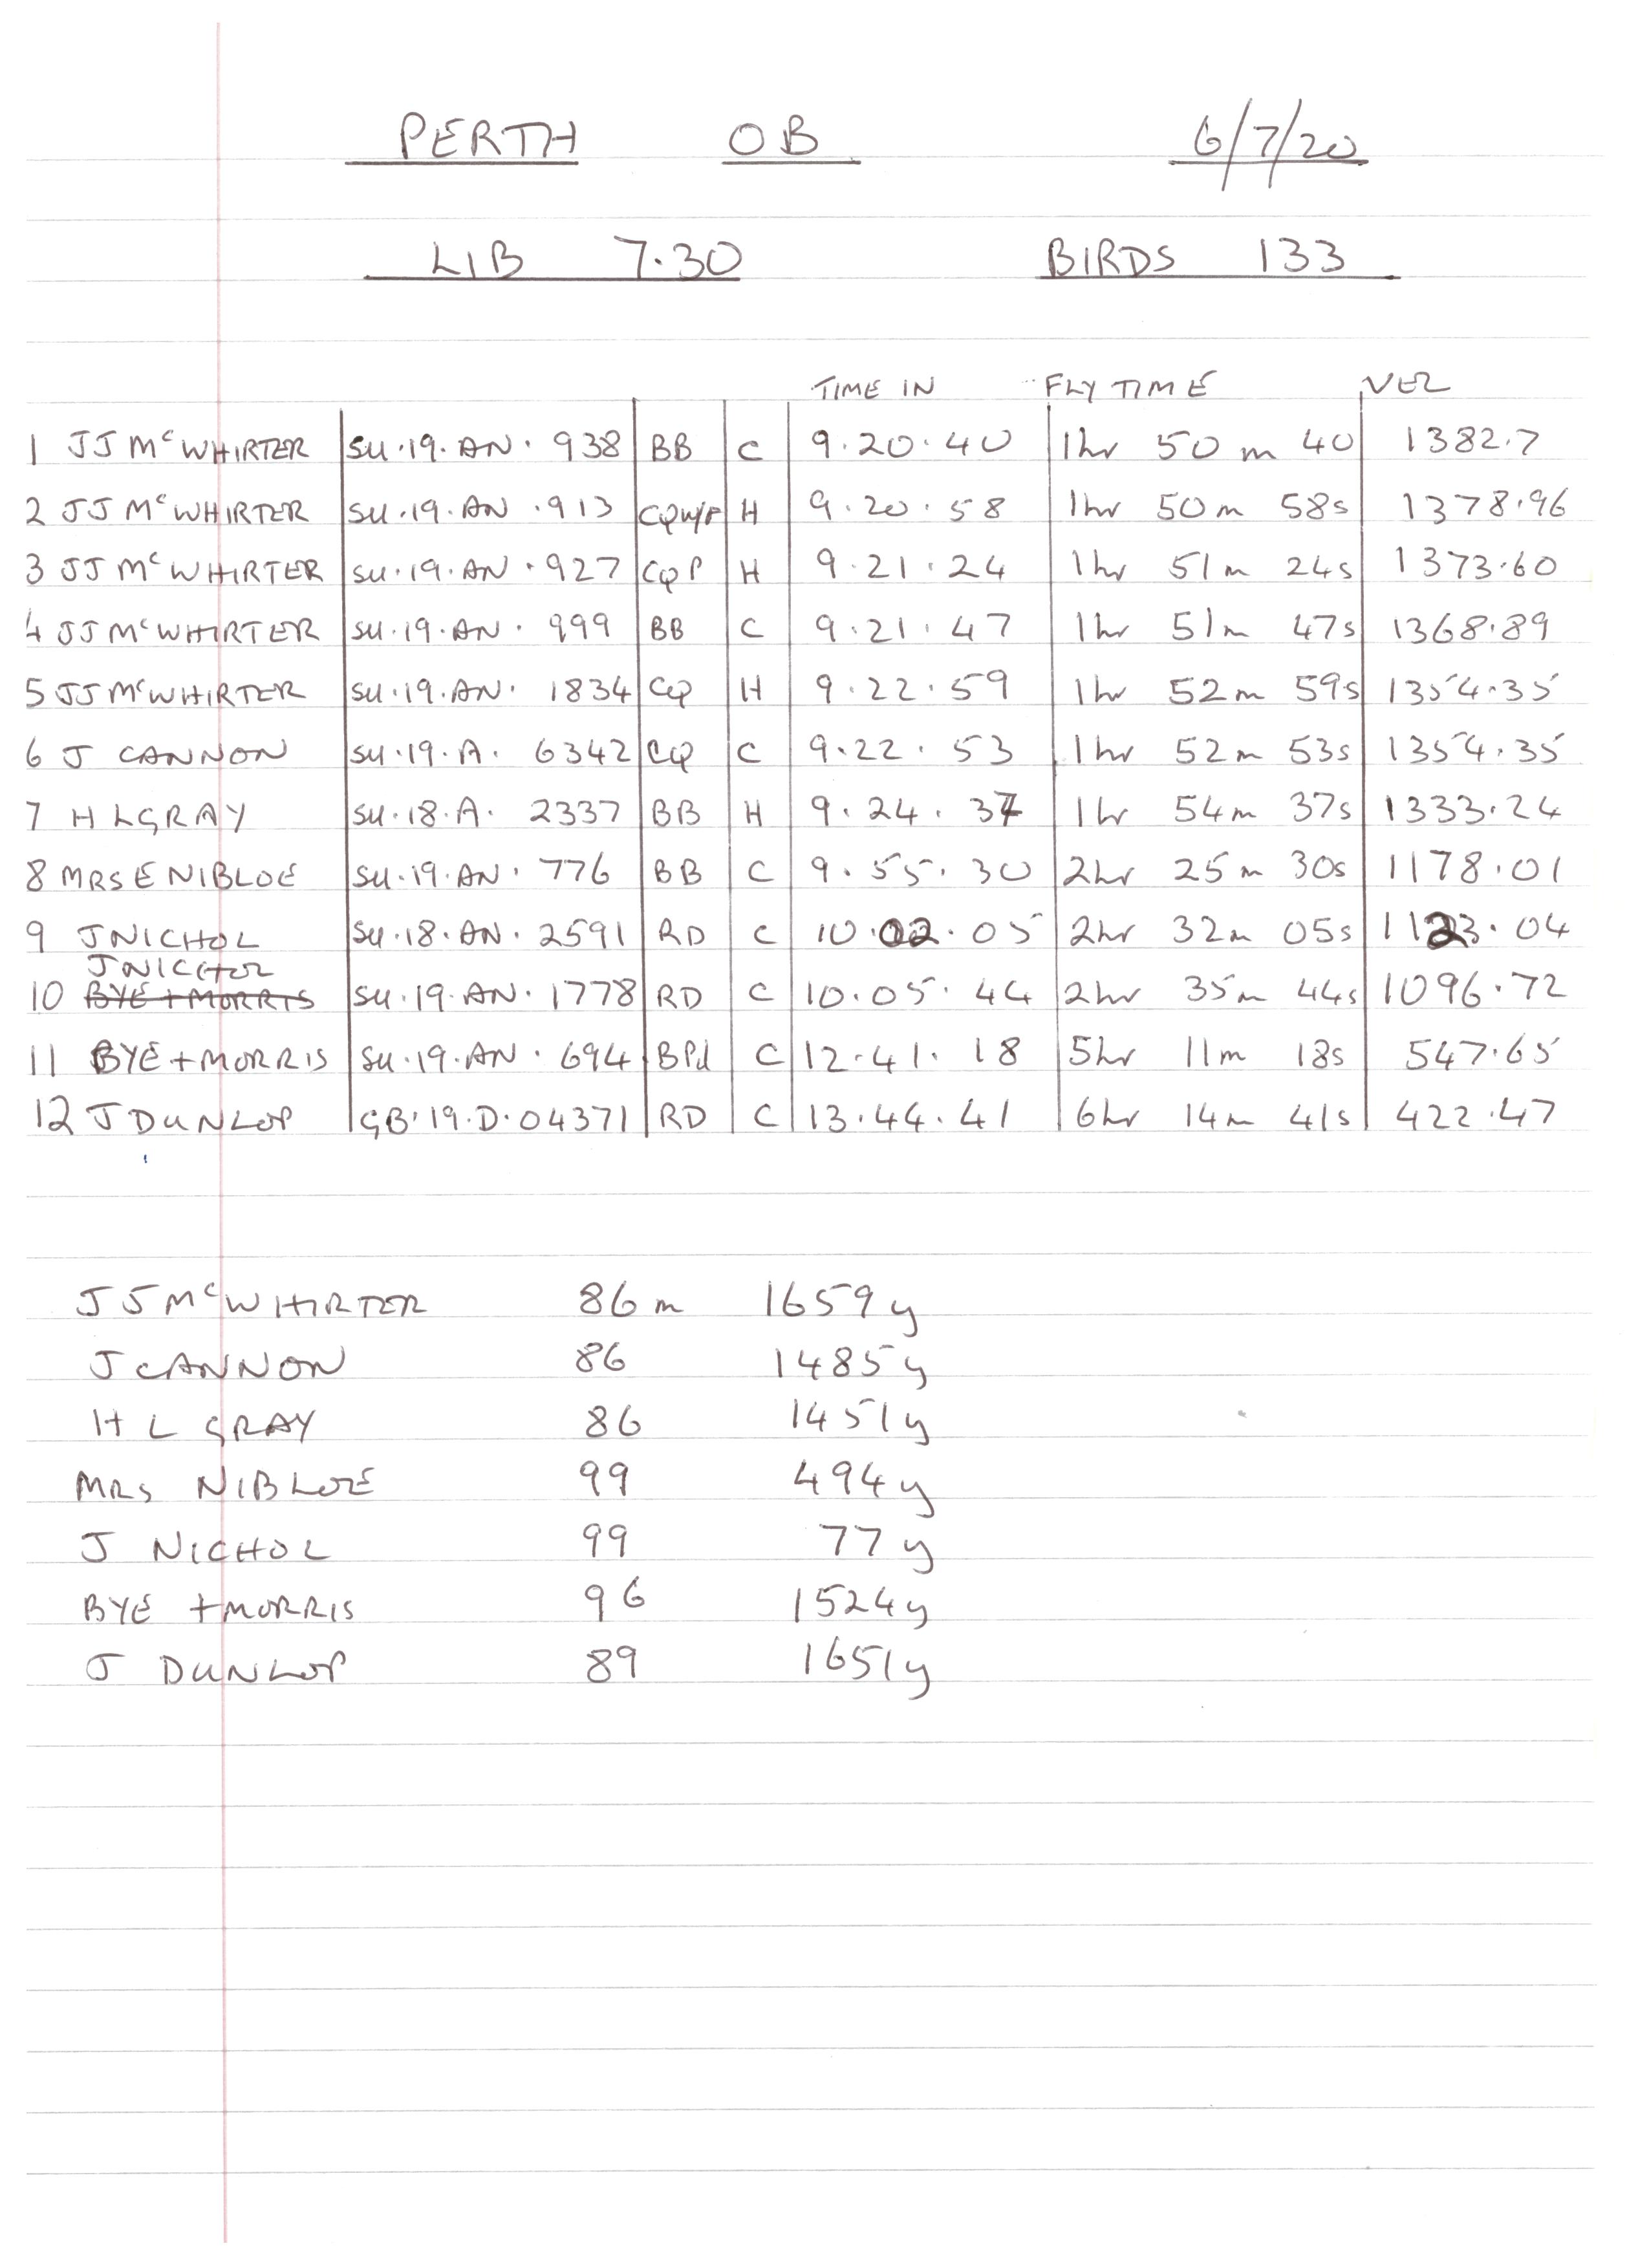 PERTH OB 6/7/20
LIB 7.30 BIRDS 133
TIME IN FLY TIME VEL
1 JJ McWHIRTER SU.19.AN. 938 BB C 9.20.40 1hr 50m 40 1382.7
2 JJ McWHIRTER SU.19.AN.913 CQW/F H 9.20.58 1hr 50m 58s 1378.96
3 JJ McWHIRTER SU.19.AN.927 CQP H 9.21.24 1hr 51m 24s 1373.60
4 JJ McWHIRTER SU.19.AN. 999 BB C 9.21.47 1hr 51m 47s 1368.89
5 JJ McWHIRTER SU.19.AN. 1834 CQ H 9.22.59 1hr 52m 59s 1354.35
6 J CANNON SU.19.A. 6342 CQ C 9.22.53 1hr 52m 53s 1354.35
7 H L GRAY SU.18.A. 2337 BB H 9.24.37 1hr 54m 37s 1333.24
8 MRS E NIBLOE SU.19.AN. 776 BB C 9.55.30 2hr 25m 30s 1178.01
9 J NICHOL SU.18.AN. 2591 RD C 10.02.05 2hr 32m 05s 1123.04
J NICHOL
10 BYE + MORRIS SU.19.AN.1778 RD C 10.05.44 2hr 35m 44s 1096.72
11 BYE + MORRIS SU.19.AN. 694 BPd C 12.41.18 5hr 11m 18s 547.65
12 J DUNLOP GB.19.D.04371 RD C 13.44.41 6hr 14m 41s 422.47
J J McWHIRTER 86m 1659y
J CANNON 86 1485y
H L GRAY 86 1451y
MRS NIBLOE 99 494y
J NICHOL 99 77y
BYE + MORRIS 96 1524y
J DUNLOP 89 1651y